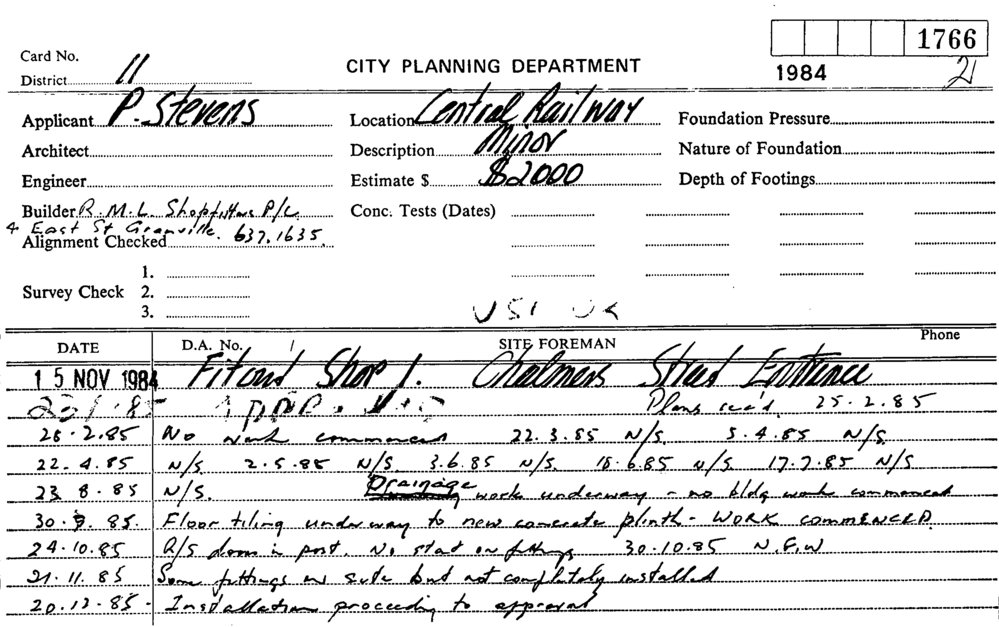 1766
Card No.
District 11
CITY PLANNING DEPARTMENT
1984
21
Applicant P. Stevens
Location Central Railway
Foundation Pressure
Architect
Description Minor
Nature of Foundation
Engineer
Estimate $ $2000
Depth of Footings
Builder R.M.L. Shopfitters P/L
Conc. Tests (Dates)
4 East St Granville. 637.1635.
Alignment Checked
1.
Survey Check 2.
3.
DATE D.A. No. SITE FOREMAN Phone
15 NOV 1984 Fitout Shop 1. Chalmers Street Entrance
85 Plans rec'd. 25.2.85
28.2.85 No work commenced 22.3.85 N/S. 3.4.85 N/S.
22.4.85 N/S. 2.5.85 N/S. 3.6.85 N/S. 18.6.85 N/S 17.7.85 N/S
23 8.85 N/S. Drainage work underway - no bldg work commenced
30.9.85. Floor tiling underway to new concrete plinth - WORK COMMENCED.
24.10.85 R/S doors in post. No start on fittings 30.10.85 N.F.W
21.11.85 Some fittings on site but not completely installed
20.12.85 - Installation proceeding to approval